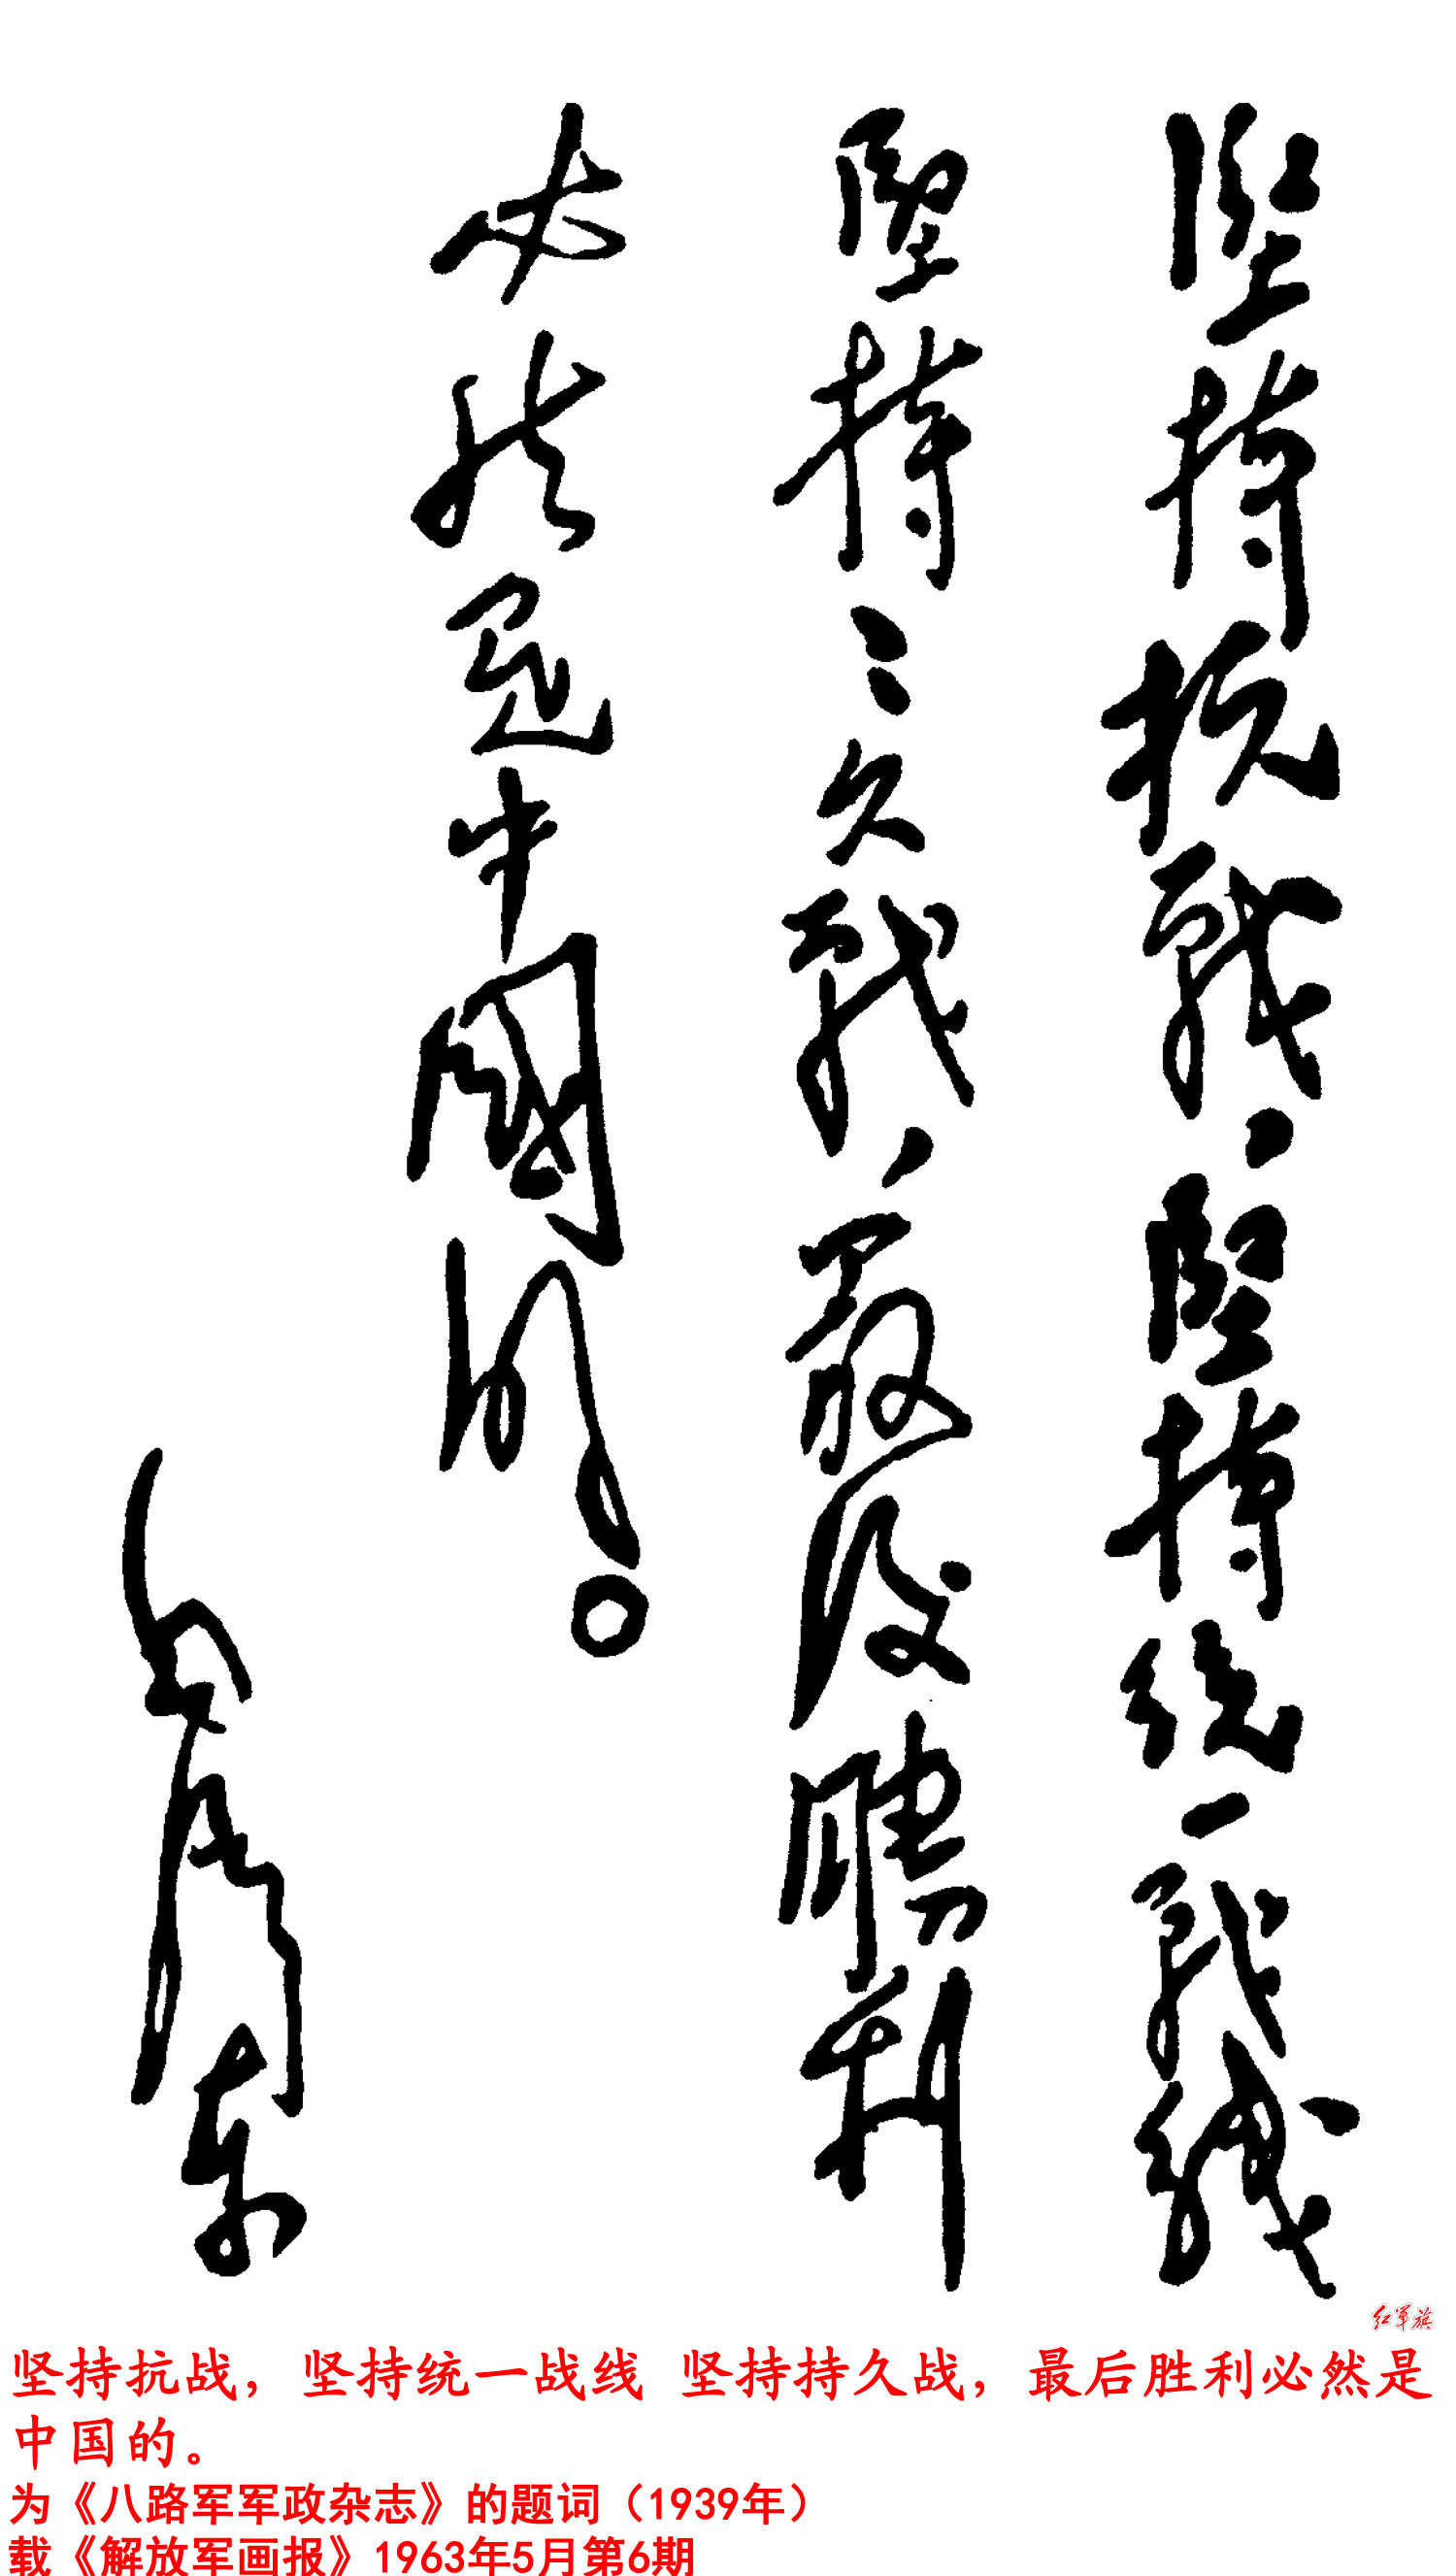 坚持抗戰，坚持統一戰綫
坚持〻久戰，最後勝利
必然是中國的。
毛澤东
红军旗
坚持抗战，坚持统一战线 坚持持久战，最后胜利必然是
中国的。
为《八路军军政杂志》的题词（1939年）
载《解放军画报》1963年5月第6期